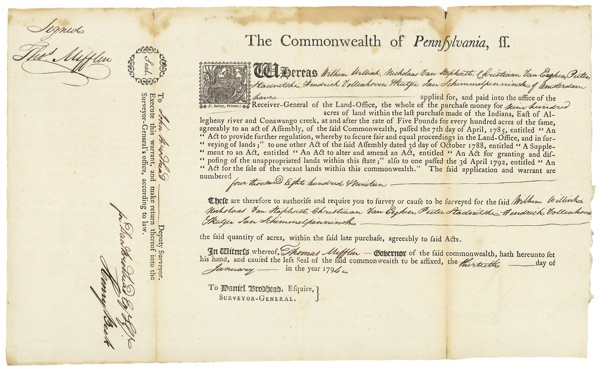 Signed
Thos. Mifflin
Seal.
The Commonwealth of Pennsylvania, ss.
WHEREAS Wilhem Willink, Nicholas Van Staphorst, Christiaan Van Eeghen, Pieter
Stadnitski, Hendrick Vollenhoven & Rutger Jan Schimmelpenninck of Amsterdam
have applied for, and paid into the office of the
Receiver-General of the Land-Office, the whole of the purchase money for nine hundred
acres of land within the last purchase made of the Indians, East of Al-
legheny river and Conawango creek, at and after the rate of Five Pounds for every hundred acres of the same,
agreeably to an act of Assembly, of the said Commonwealth, passed the day of April, 1785, entitled "An
Act to provide further regulation, whereby to secure fair and equal proceedings in the Land-Office, and in sur-
veying of lands;" to one other Act of the said Assembly dated 3d day of October 1788, entitled "A Supple-
ment to an Act, entitled "An Act to alter and amend an Act, entitled "An Act for granting and dis-
posing of the unappropriated lands within this state;" also to one passed the 3d April 1792, entitled "An
Act for the sale of the vacant lands within this commonwealth." The said application and warrant are
numbered
four thousand Eight hundred & Nineteen
These are therefore to authorise and require you to survey or cause to be surveyed for the said Wilhem Willink
Nicholas Van Staphorst Christiaan Van Eeghen Pieter Stadnitski, Hendrick Vollenhoven
& Rutger Jan Schimmelpenninck
the said quantity of acres, within the said late purchase, agreeably to said Acts.
In Witness whereof, Thomas Mifflin Governor of the said commonwealth, hath hereunto set
his hand, and caused the less Seal of the said commonwealth to be affixed, the thirtieth day of
January in the year 1794.
To Daniel Brodhead, Esquire,
SURVEYOR-GENERAL.
To John Brodhead Deputy Surveyor.
Execute this warrant, and make return thereof into the
Surveyor-General's office, according to law.
for Dan Brodhead Esq. S.G.